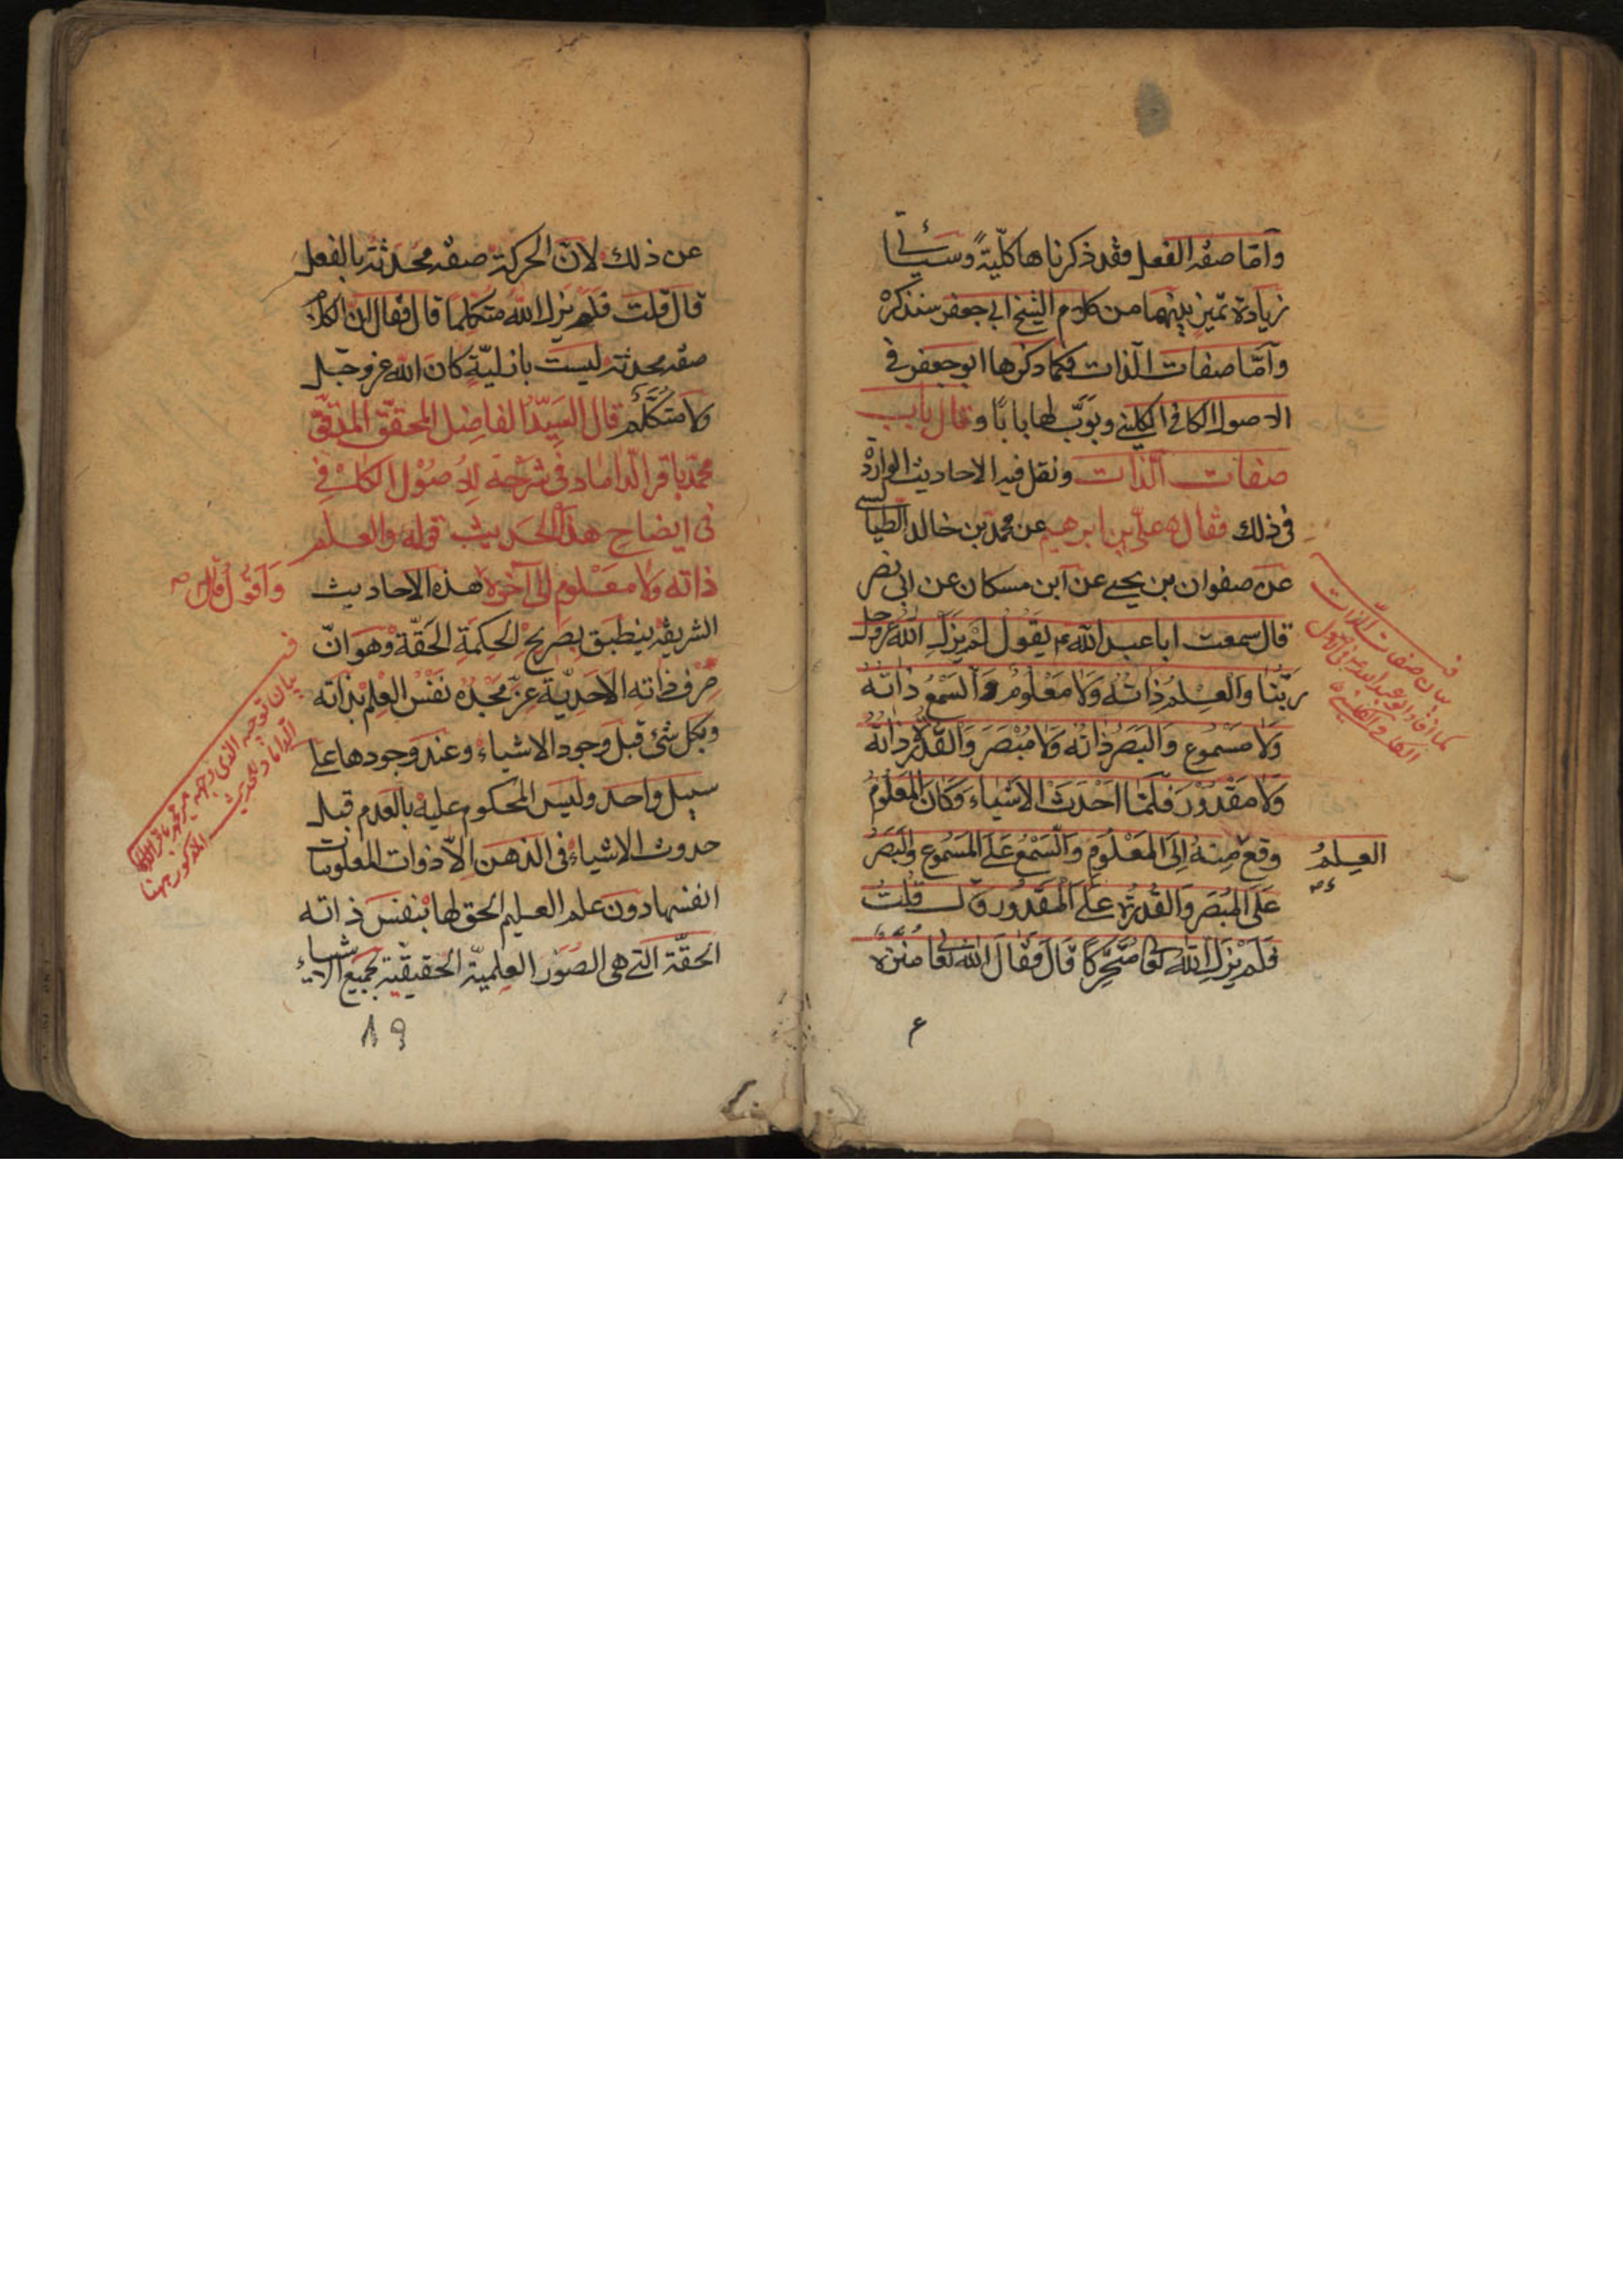 وآمّا صفة الفعل فقد ذكرناها كلّيّةً وسيأتى
زيادة تميز بينهما من كلام الشيخ ابى جعفر سنذكره
وآمّا صفات الذات فكما ذكرها ابو جعفر فى
الاصول الكافى الكلينى وبوّب لها بابًا وقال باب
صفات الذات ونقل فيه الاحاديث الواردة
فى ذلك فقال ه علىّ بن ابرهيم عن محمد بن خالد الطيالسى
عن صفوان بن يحيى عن ابن مسكان عن ابى بصر
قال سمعت ابا عبد الله ع يقول لم يزل الله عز وجل
ربّنا والعلم ذاته ولا معلوم والسمع ذاته
ولا مسموع والبصر ذاته ولا مبصر والقدرة ذاته
ولا مقدور فلمّا احدث الاشياء وكان المعلوم
وقع منه إلى المعلوم والسمع على المسموع والبصر
العلم
على المبصر والقدرة على المقدور قال قلت
فلم يزل الله تعا متحركا قال فقال الله تعالى تعا منزه
فى بيان صفات الذات
كما افاد ابو عبد الله ع فى الاصول
الكافى الكلينى
ع
عن ذلك لانّ الحركة صفة محدثة بالفعل
قال قلت فلم يزل الله متكلما قال فقال انّ الكلام
صفة محدثة ليست بازليّة كان الله عز وجل
ولا متكلّم قال السيّد الفاضل المحقّق المدقّق
محمّد باقر الداماد فى شرحه للاصول الكافى
فى ايضاح هذا الحديث قوله والعلم
ذاته ولا معلوم الى آخره هذه الاحاديث
وآقول قال صح
الشريفة ينطبق بصريح الحكمة الحقّة وهو انّ
صرف ذاته الاحديّة عزّ مجده نفس العلم بذاته
وبكل شئ قبل وجود الاشياء وعند وجودها على
سبيل واحد وليس المحكوم عليه بالعدم قبل
حدوث الاشياء فى الذهن الّا ذوات المعلومات
انفسها دون علم العليم الحق لها بنفس ذاته
الحقّة التى هى الصور العلميّة الحقيقيّة بجميع الاشياء
فى بيان توجيه الذى وجهه مير محمد باقر
الداماد للحديث المذكور ههنا
١٩